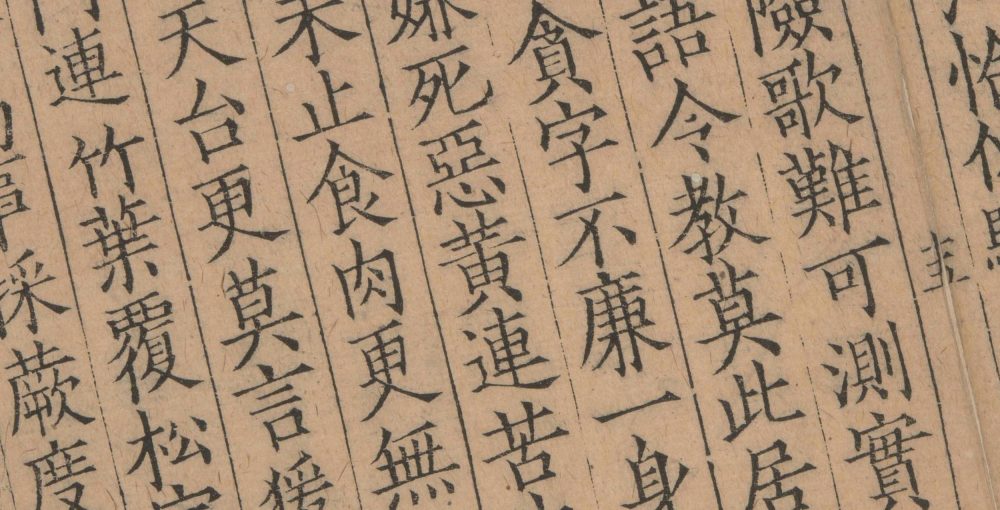 恰
險歌難可測實
語令教莫此居
貪字不廉一身
嫌死惡黃連苦
未止食肉更無
天台更莫言猨
連竹葉覆松
採蕨度